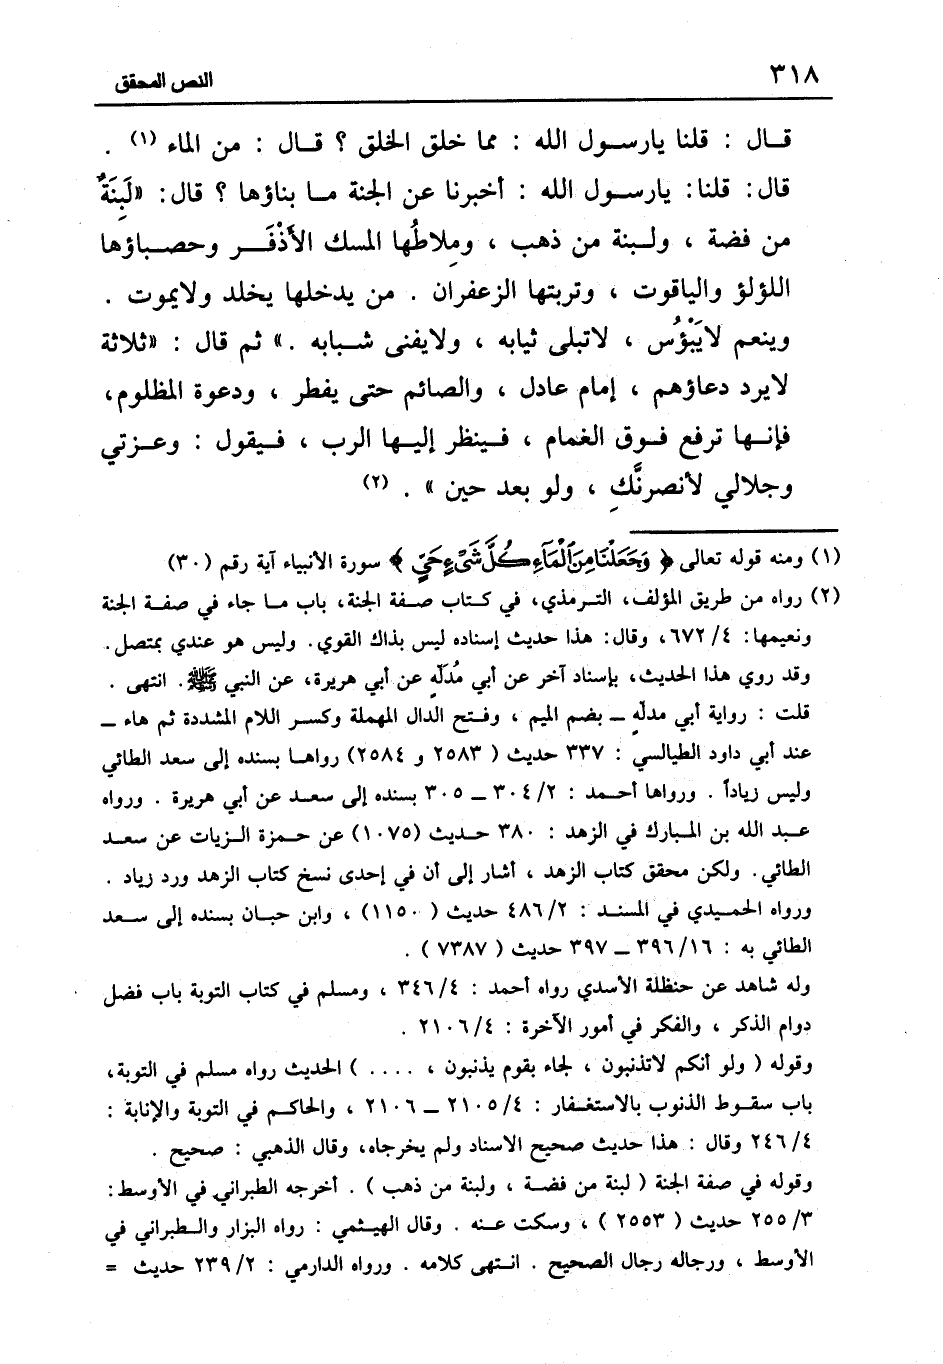 ٣١٨ النص المحقق
قـال : قلنا يارسـول الله : مما خلق الخلق ؟ قـال : من الماء (١) .
قال: قلنا: يارسـول الله : أخبرنا عن الجنة مـا بناؤها ؟ قال: «لَبِنَةٌ
من فضة ، ولـبنة من ذهب ، ومِلاطُها المسك الأَذْفَـر وحصـباؤها
اللؤلؤ والياقوت ، وتربتها الزعفران . من يدخلها يخلد ولايموت .
وينعم لايَبْؤُس ، لاتبلى ثيابه ، ولايفنى شـبابه .» ثم قال : «ثلاثة
لايرد دعاؤهم ، إمام عادل ، والصائم حتى يفطر ، ودعوة المظلوم،
فإنـها ترفع فـوق الغمام ، فـينظر إليـها الرب ، فـيقول : وعـزتي
وجلالي لأنصرنَّكِ ، ولو بعد حين » . (٢)
(١) ومنه قوله تعالى ﴿ وَجَعَلْنَا مِنَ ٱلْمَآءِ كُلَّ شَىْءٍ حَىٍّ ﴾ سورة الأنبياء آية رقم (٣٠)
(٢) رواه من طريق المؤلف، التـرمذي، في كـتاب صـفة الجنة، باب مـا جاء في صفـة الجنة
ونعيمها: ٤/ ٦٧٢، وقال: هذا حديث إسناده ليس بذاك القوي. وليس هو عندي بمتصل.
وقد روي هذا الحديث، بإسناد آخر عن أبي مُدَلّهِ عن أبي هريرة، عن النبي ﷺ. انتهى .
قلت : رواية أبي مدلّهِ ـ بضم الميم ، وفـتح الدال المهملة وكسـر اللام المشددة ثم هاء ـ
عند أبي داود الطيالسي : ٣٣٧ حديث ( ٢٥٨٣ و ٢٥٨٤) رواهـا بسنده إلى سعد الطائي
وليس زياداً . ورواها أحـمد : ٢/ ٣٠٤ ـ ٣٠٥ بسنده إلى سعـد عن أبي هريرة . ورواه
عبـد الله بن المـبارك في الزهد : ٣٨٠ حـديث (١٠٧٥) عن حـمزة الـزيات عن سعـد
الطائي. ولكن محقق كتاب الزهد ، أشار إلى أن في إحدى نسخ كتاب الزهد ورد زياد .
ورواه الحمـيدي في المسند : ٢/ ٤٨٦ حديث ( ١١٥٠) ، وابن حبـان بسنده إلى سـعد
الطائي به : ١٦/ ٣٩٦ ـ ٣٩٧ حديث ( ٧٣٨٧ ) .
وله شاهد عن حنظلة الأسدي رواه أحمد : ٤/ ٣٤٦ ، ومسلم في كتاب التوبة باب فضل
دوام الذكر ، والفكر في أمور الآخرة : ٤/ ٢١٠٦ .
وقوله ( ولو أنكم لاتذنبون ، لجاء بقوم يذنبون ، .... ) الحديث رواه مسلم في التوبة،
باب سقـوط الذنوب بالاستغـفار : ٤/ ٢١٠٥ ـ ٢١٠٦ ، والحاكـم في التوبة والإنابة :
٤/ ٢٤٦ وقال : هذا حديث صحيح الاسناد ولم يخرجاه، وقال الذهبي : صحيح .
وقوله في صفة الجنة ( لبنة من فضـة ، ولبنة من ذهب ) . أخرجه الطبراني في الأوسط:
٣/ ٢٥٥ حديث ( ٢٥٥٣ ) ، وسكت عـنه . وقال الهيـثمي : رواه البزار والـطبراني في
الأوسط ، ورجاله رجال الصحيح . انـتهى كلامه . ورواه الدارمي : ٢/ ٢٣٩ حديث =